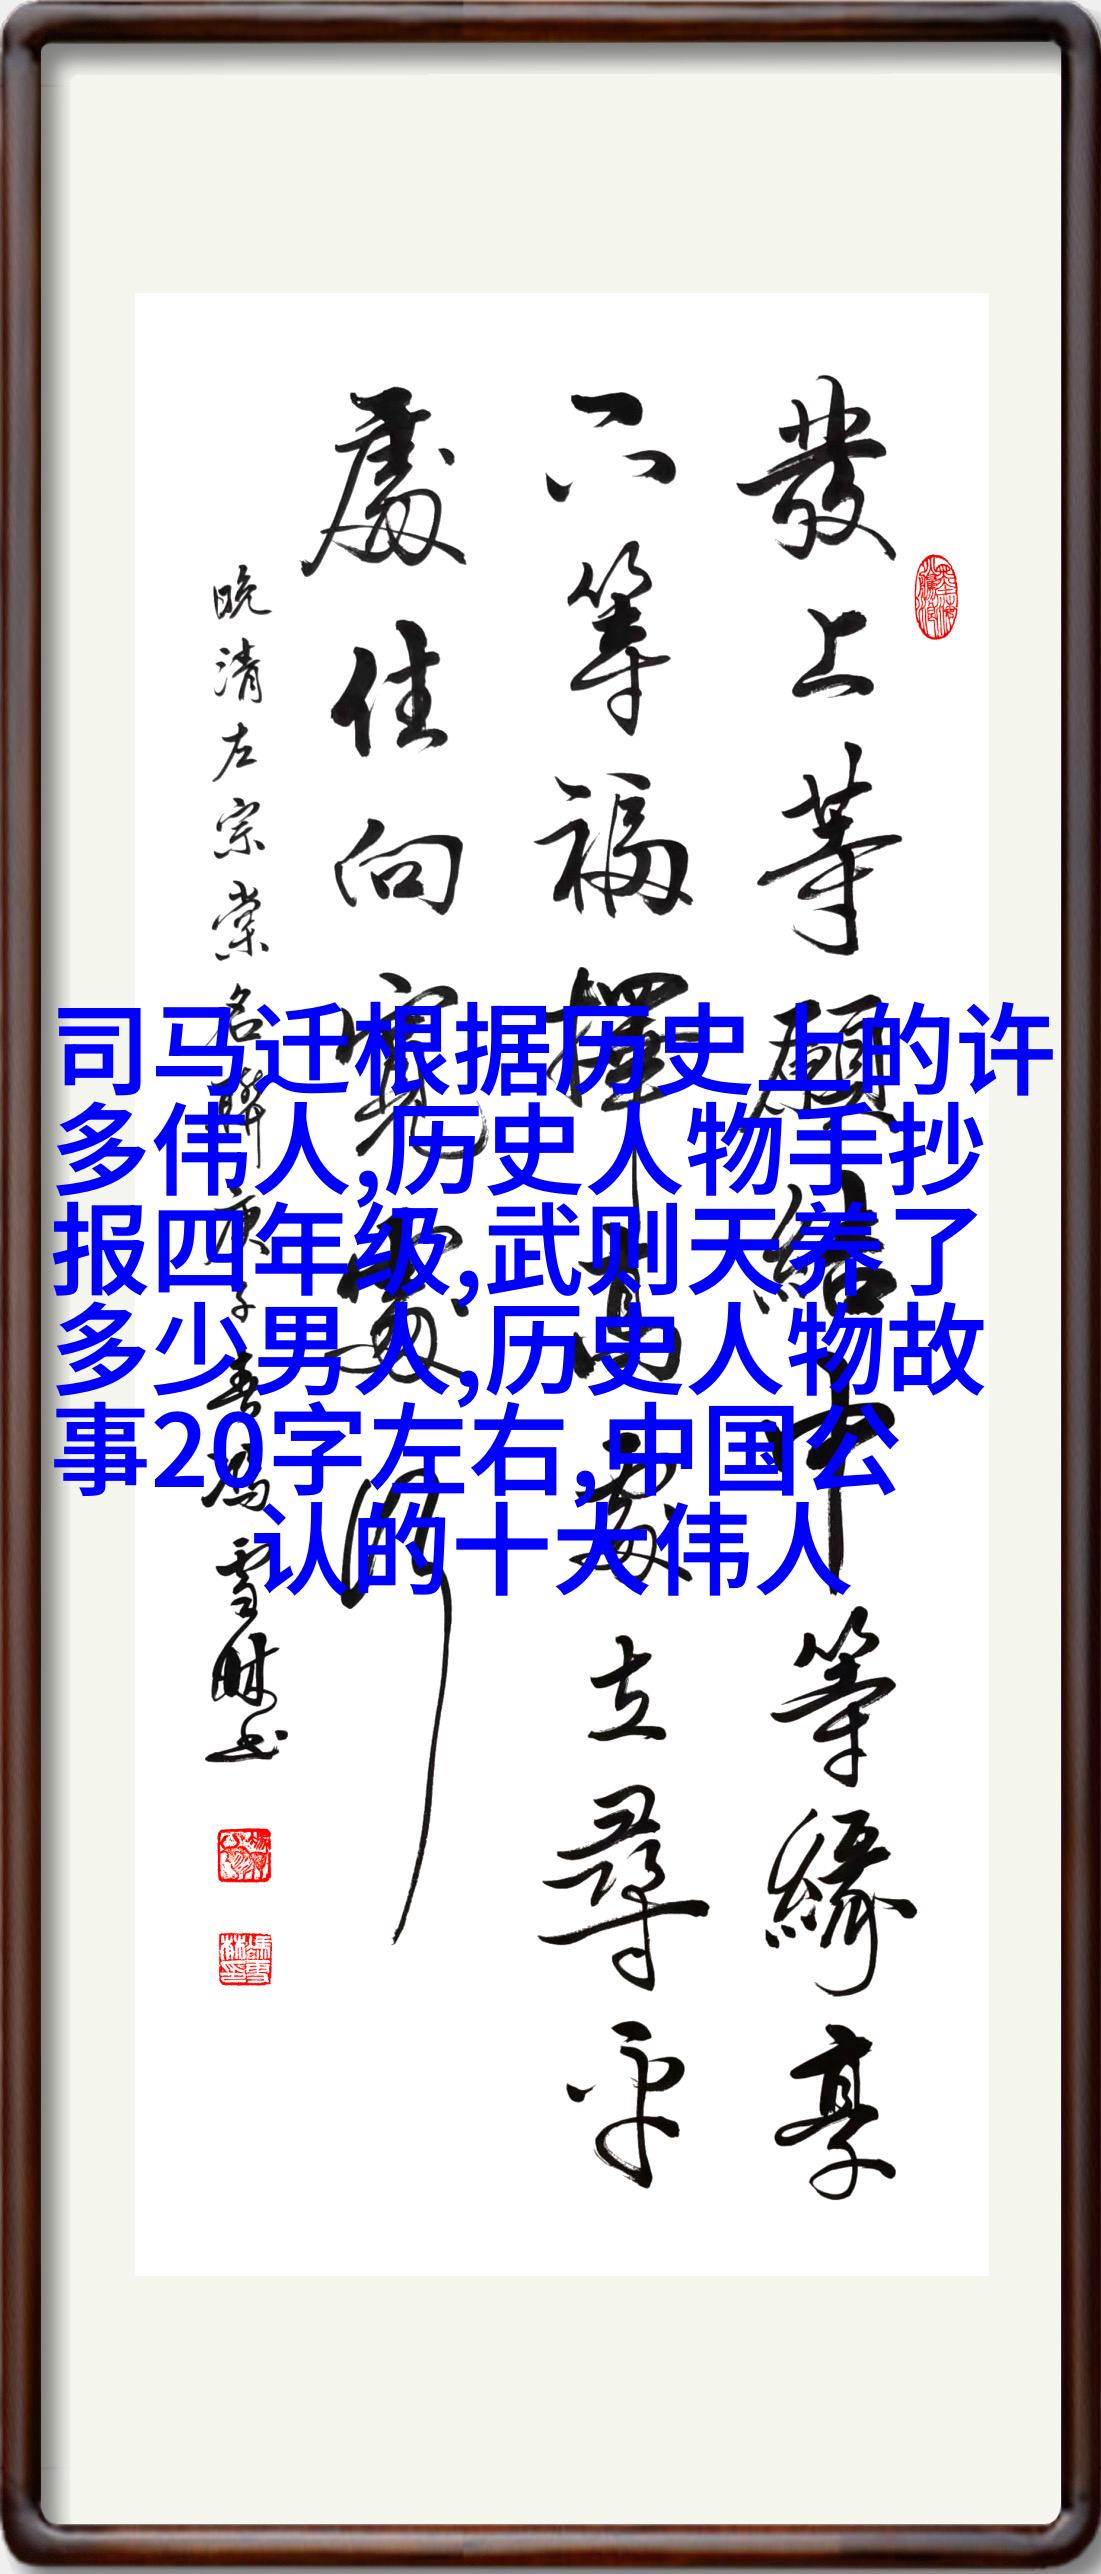 發上等願結中等緣享
下等福擇高處立尋平
處住向寬處行
晚清左宗棠名聯庚子春馮雪林书
司马迁根据历史上的许
多伟人,历史人物手抄
报四年级,武则天养了
多少男人,历史人物故
事20字左右,中国公
认的十大伟人